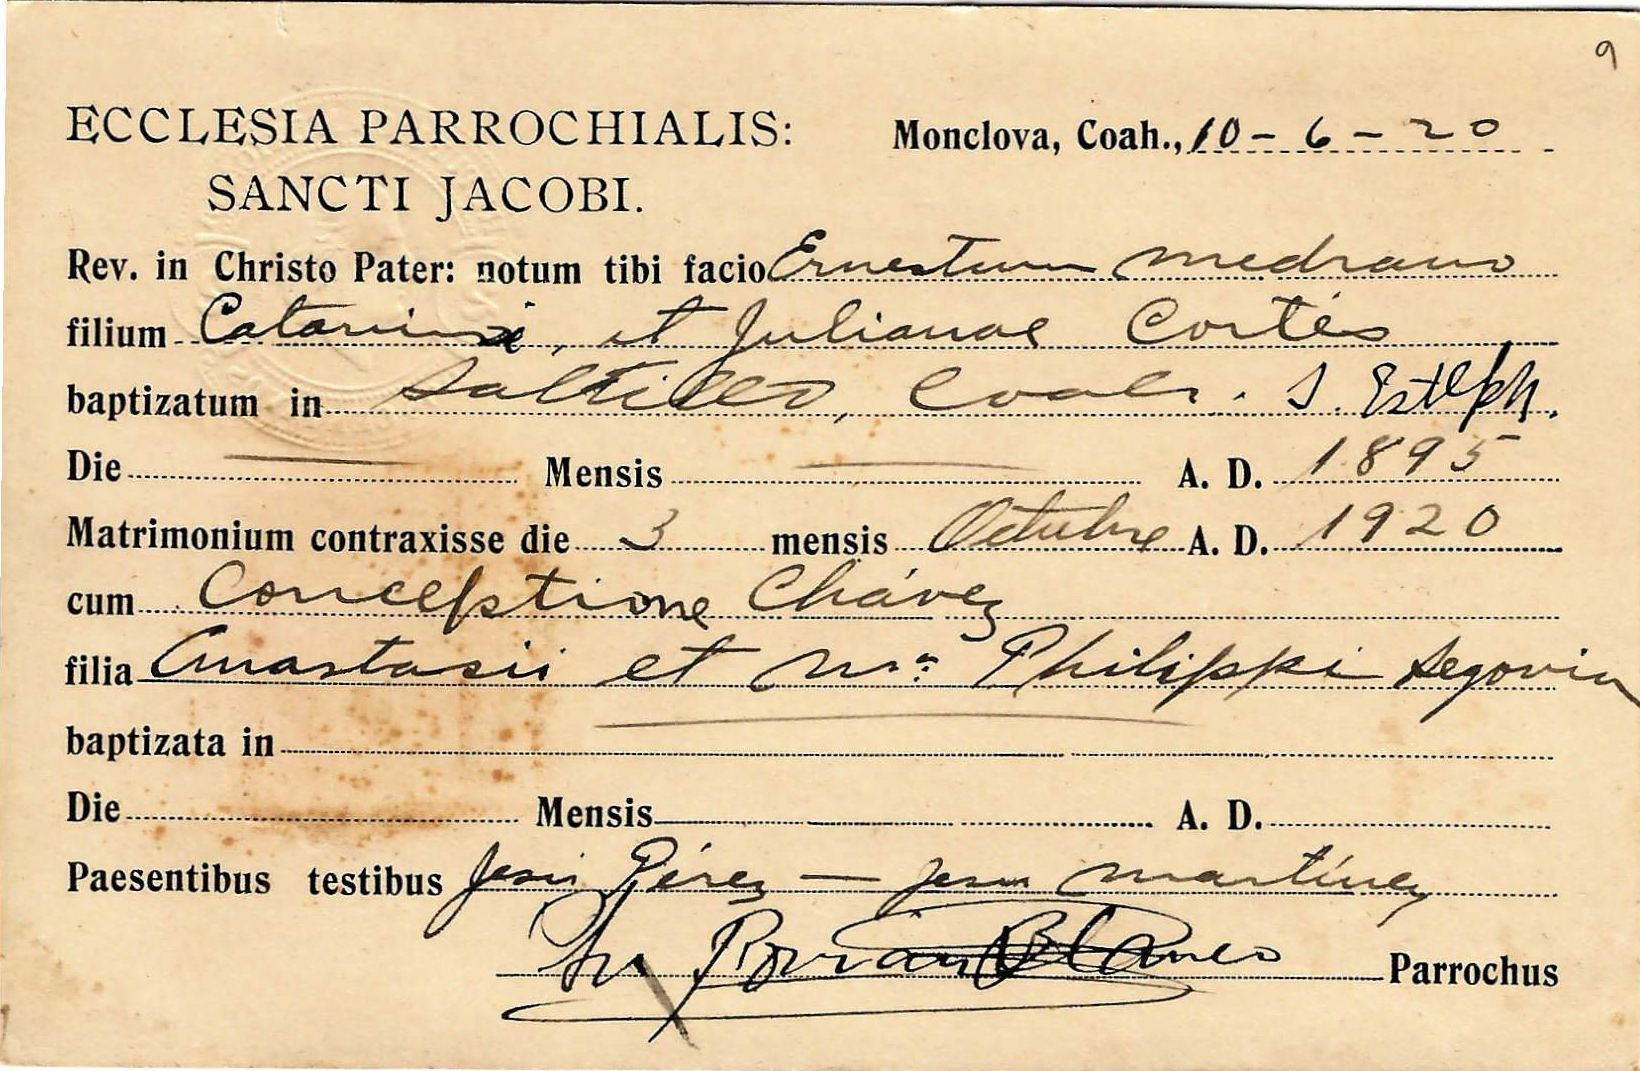 9
ECCLESIA PARROCHIALIS: Monclova, Coah., 10-6-20
SANCTI JACOBI.
Rev. in Christo Pater: notum tibi facio Ernestum Medrano
filium Catarini, et Julianae Cortés
baptizatum in Saltillo, Coah. S. Esteph.
Die Mensis A. D. 1895
Matrimonium contraxisse die 3 mensis Octubre A. D. 1920
cum Conceptione Chávez
filia Anastasii et Ma. Philippi Segovia
baptizata in
Die Mensis A. D.
Paesentibus testibus Jesús Pérez — Jesus Martínez
Román Blanco Parrochus